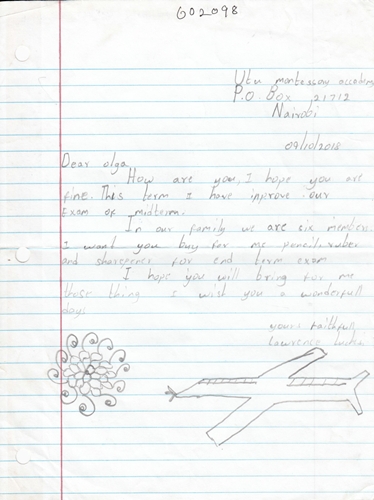 G02098
Utu montessory accademy
P.O. Box 21712
Nairobi
09/10/2018
Dear olga
How are you, I hope you are
fine. This term I have inprove our
Exam of midterm.
In our family we are six members
I want you buy for me pencil, ruber
and sharpener for end term exam
I hope you will bring for me
those thing I wish you a wonderfull
day
yours faithfull
Lawrence